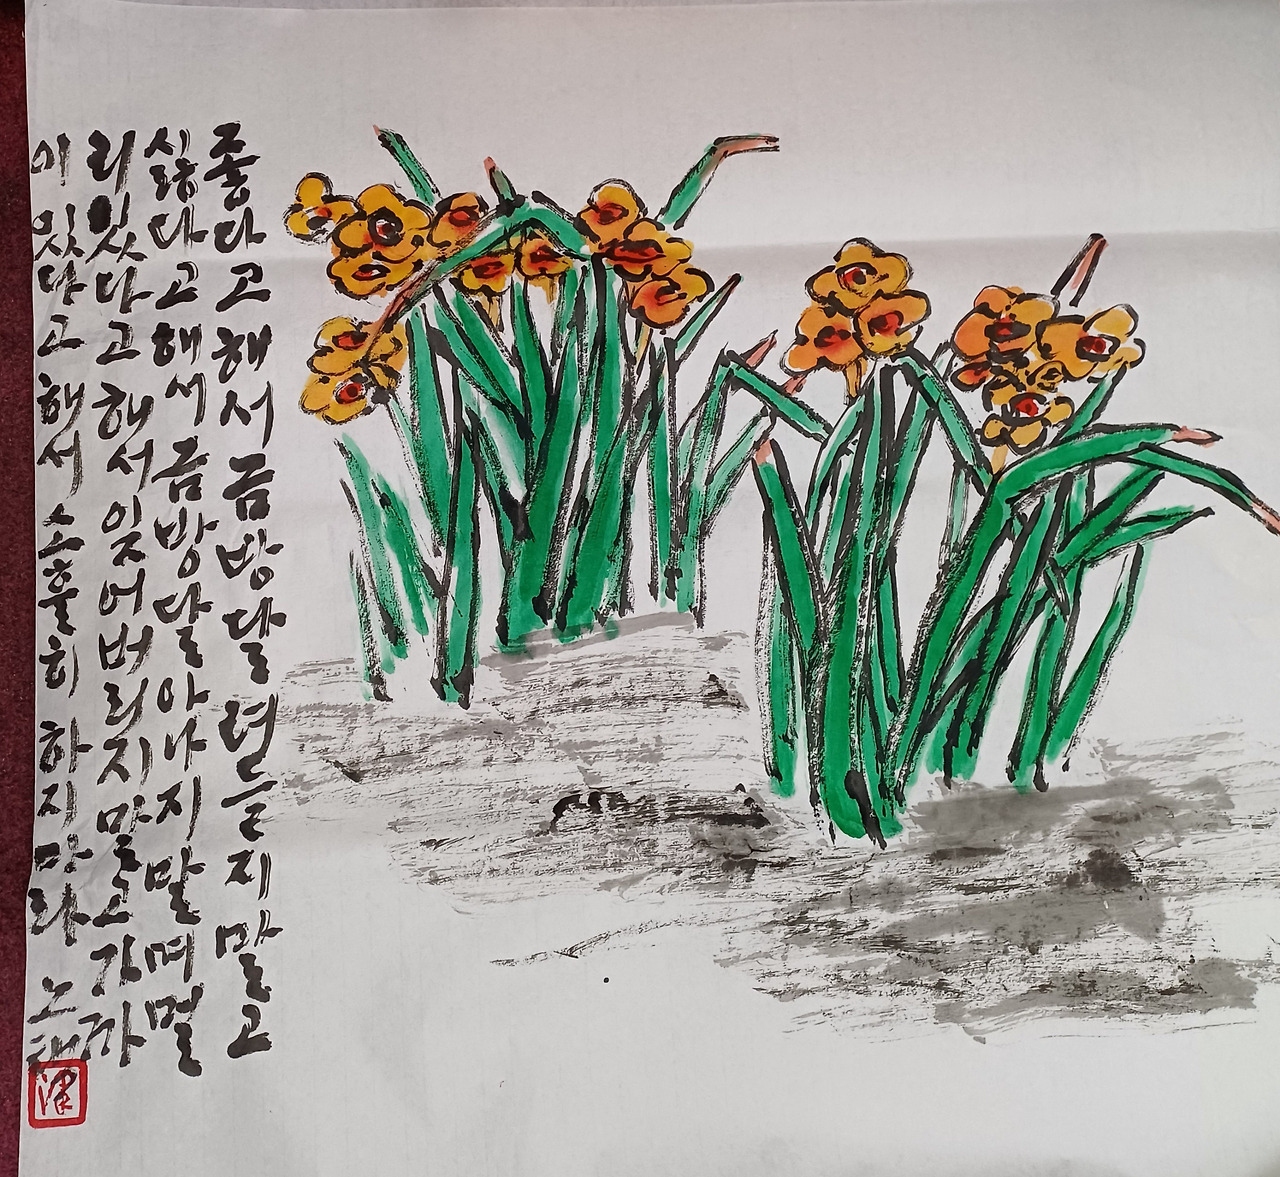 좋다고 해서 금방 달려들지 말고
싫다고 해서 금방 달아나지 말며 멀
리 있다고 해서 잊어버리지 말고 가까
이 있다고 해서 소홀히 하지 마라 노